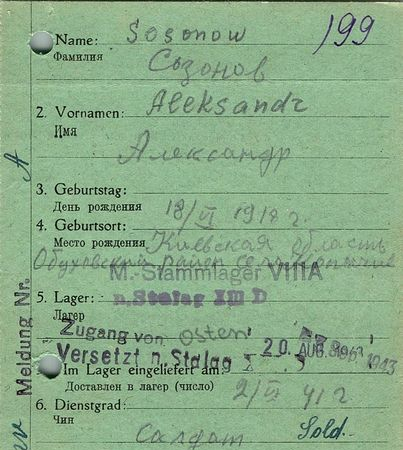 Name: Sosonow 199
Фамилия Созонов
2. Vornamen: Aleksandr
Имя
Александр
3. Geburtstag:
День рождения 18/VI 1918 г.
4. Geburtsort:
Место рождения Киевская область
Обуховский район село
M.-Stammlager VIIIA
5. Lager: n. Stalag XIII D
Лагер
Zugang von Osten
Versetzt n. Stalag 20. AUG. 1943
Im Lager eingeliefert am:
Доставлен в лагер (число) 2/VI 41 г
6. Dienstgrad:
Чин Салдат Sold.
Meldung Nr. A